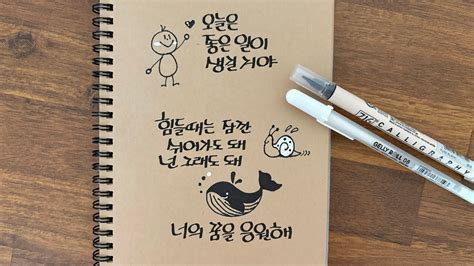 오늘은
좋은 일이
생길 거야
힘들때는 잠깐
쉬어가도 돼
넌 그래도 돼
너의 꿈을 응원해
CALLIGRAPHY
GELLY ROLL 08